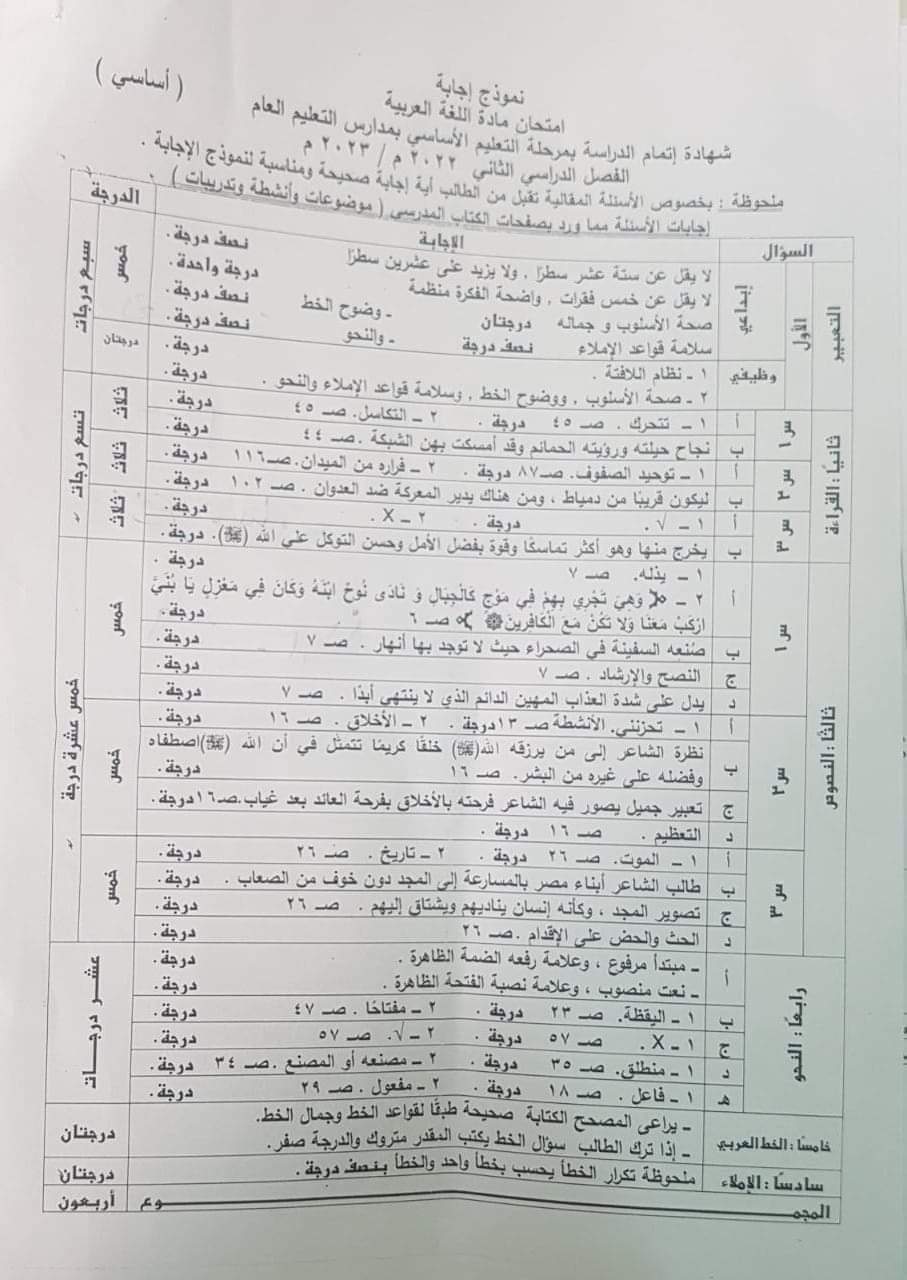 نموذج إجابة
( أساسي )
امتحان مادة اللغة العربية
شهادة إتمام الدراسة بمرحلة التعليم الأساسي بمدارس التعليم العام
الفصل الدراسي الثاني ٢٠٢٢ م / ٢٠٢٣ م
ملحوظة : بخصوص الأسئلة المقالية تقبل من الطالب أية إجابة صحيحة ومناسبة لنموذج الإجابة .
إجابات الأسئلة مما ورد بصفحات الكتاب المدرسي ( موضوعات وأنشطة وتدريبات ) .
السؤال الإجابة الدرجة
التعبير الأول إبداعي لا يقل عن ستة عشر سطرًا , ولا يزيد على عشرين سطرًا نصف درجة . خمس سبع درجات
لا يقل عن خمس فقرات , واضحة الفكرة منظمة درجة واحدة .
صحة الأسلوب و جماله درجتان - وضوح الخط نصف درجة .
سلامة قواعد الإملاء نصف درجة - والنحو نصف درجة .
وظيفي ١ - نظام اللافتة . درجة . درجتان
٢ - صحة الأسلوب , ووضوح الخط , وسلامة قواعد الإملاء والنحو . درجة .
ثانيًا : القراءة س١ أ ١ – تتحرك . صـ ٤٥ درجة . ٢ – التكاسل . صـ ٤٥ درجة . ثلاث تسع درجات
ب نجاح حيلته ورؤيته الحمائم وقد أمسكت بهن الشبكة . صـ ٤٤ درجة .
س٢ أ ١ – توحيد الصفوف. صـ٨٧ درجة . ٢ – فراره من الميدان. صـ١١٦ درجة . ثلاث
ب ليكون قريبًا من دمياط ، ومن هناك يدير المعركة ضد العدوان . صـ ١٠٢ درجة .
س٣ أ ١ – √ . درجة . ٢ – X . درجة . ثلاث
ب يخرج منها وهو أكثر تماسكًا وقوة بفضل الأمل وحسن التوكل على الله (ﷻ). درجة .
ثالثًا : النصوص س١ أ ١ – يذله. صـ ٧ درجة . خمس خمس عشرة درجة
٢ – وَهِيَ تَجْرِي بِهِمْ فِي مَوْجٍ كَالْجِبَالِ وَ نَادَى نُوحٌ ابْنَهُ وَكَانَ فِي مَعْزِلٍ يَا بُنَيَّ
ارْكَبْ مَعَنَا وَلَا تَكُنْ مَعَ الْكَافِرِينَ صـ ٦ درجة .
ب صُنعه السفينة في الصحراء حيث لا توجد بها أنهار . صـ ٧ درجة .
ج النصح والإرشاد . صـ ٧ درجة .
د يدل على شدة العذاب المهين الدائم الذي لا ينتهى أبدًا . صـ ٧ درجة .
س٢ أ ١ – تحزنني. الأنشطة صـ ١٣درجة . ٢ – الأخلاق . صـ ١٦ درجة . خمس
ب نظرة الشاعر إلى من يرزقه الله(ﷻ) خلقًا كريمًا تتمثل في أن الله (ﷻ)اصطفاه
وفضله على غيره من البشر. صـ ١٦ درجة .
ج تعبير جميل يصور فيه الشاعر فرحته بالأخلاق بفرحة العائد بعد غياب.صـ١٦درجة .
د التعظيم . صـ ١٦ درجة .
س٣ أ ١ – الموت. صـ ٢٦ درجة . ٢ – تاريخ . صـ ٢٦ درجة . خمس
ب طالب الشاعر أبناء مصر بالمسارعة إلى المجد دون خوف من الصعاب . درجة .
ج تصوير المجد ، وكأنه إنسان يناديهم ويشتاق إليهم . صـ ٢٦ درجة .
د الحث والحض على الإقدام . صـ ٢٦ درجة .
رابعًا : النحو أ ـ مبتدأ مرفوع ، وعلامة رفعه الضمة الظاهرة . درجة . عشر درجات
ـ نعت منصوب ، وعلامة نصبة الفتحة الظاهرة . درجة .
ب ١ – اليقظة. صـ ٢٣ درجة . ٢ – مفتاحًا . صـ ٤٧ درجة .
ج ١ – X . صـ ٥٧ درجة . ٢ – √. صـ ٥٧ درجة .
د ١ – منطلق. صـ ٣٥ درجة . ٢ – مصنعه أو المصنع .صـ ٣٤ درجة .
هـ ١ – فاعل . صـ ١٨ درجة . ٢ – مفعول . صـ ٢٩ درجة .
خامسًا : الخط العربي ـ يراعى المصحح الكتابة صحيحة طبقًا لقواعد الخط وجمال الخط. درجتان
ـ إذا ترك الطالب سؤال الخط يكتب المقدر متروك والدرجة صفر.
سادسًا : الإملاء ملحوظة تكرار الخطأ يحسب بخطأ واحد والخطأ بنصف درجة . درجتان
المجمـــوع أربعون